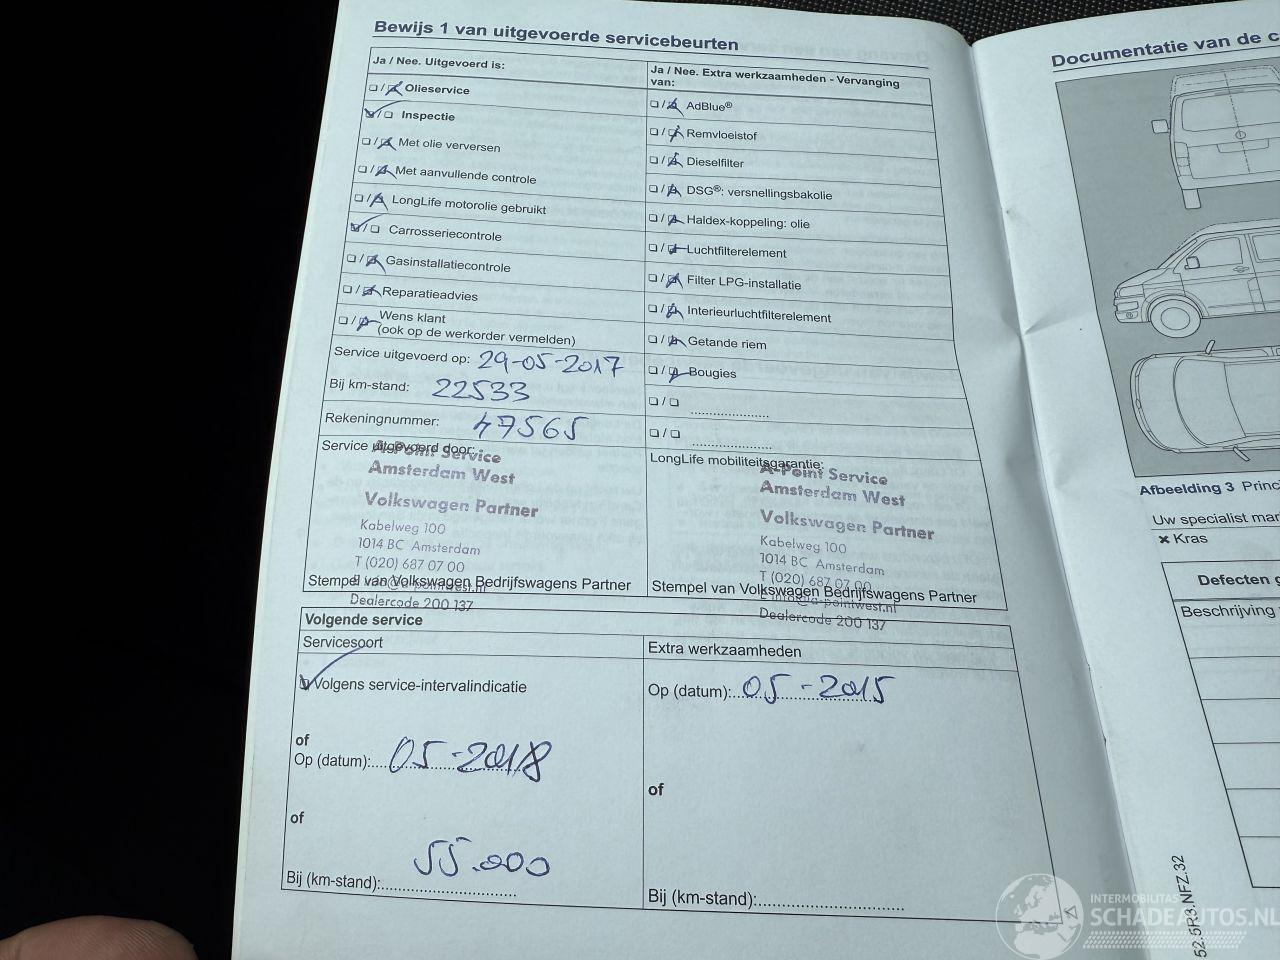 Bewijs 1 van uitgevoerde servicebeurten
Ja / Nee. Uitgevoerd is:
Olieservice
Inspectie
Met olie verversen
Met aanvullende controle
LongLife motorolie gebruikt
Carrosseriecontrole
Gasinstallatiecontrole
Reparatieadvies
Wens klant
(ook op de werkorder vermelden)
Service uitgevoerd op: 29-05-2017
Bij km-stand: 22533
Rekeningnummer: 47565
Service uitgevoerd door:
A-Point Service
Amsterdam West
Volkswagen Partner
Kabelweg 100
1014 BC Amsterdam
T (020) 687 07 00
E info@a-pointwest.nl
Stempel van Volkswagen Bedrijfswagens Partner
Dealercode 200 137
Ja / Nee. Extra werkzaamheden - Vervanging
van:
AdBlue®
Remvloeistof
Dieselfilter
DSG®: versnellingsbakolie
Haldex-koppeling: olie
Luchtfilterelement
Filter LPG-installatie
Interieurluchtfilterelement
Getande riem
Bougies
LongLife mobiliteitsgarantie:
A-Point Service
Amsterdam West
Volkswagen Partner
Kabelweg 100
1014 BC Amsterdam
T (020) 687 07 00
Stempel van Volkswagen Bedrijfswagens Partner
E info@a-pointwest.nl
Dealercode 200 137
Volgende service
Servicesoort
Volgens service-intervalindicatie
of
Op (datum): 05-2018
of
Bij (km-stand): 55.000
Extra werkzaamheden
Op (datum): 05-2015
of
Bij (km-stand):
Documentatie van de c
Afbeelding 3 Princ
Uw specialist mar
× Kras
Defecten g
Beschrijving
52.5R3.NFZ.32
INTERMOBILITAS
SCHADEAUTOS.NL